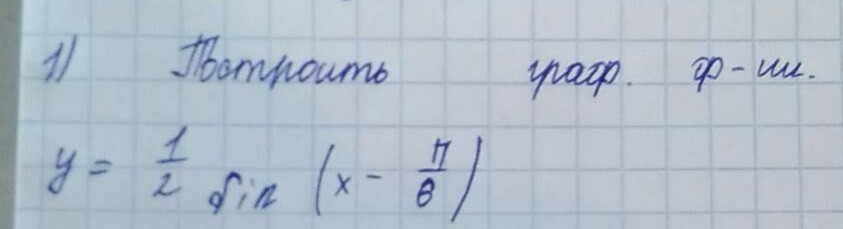 1) Построить граф. ф-ии.
y = 1/2 sin (x - π/6)